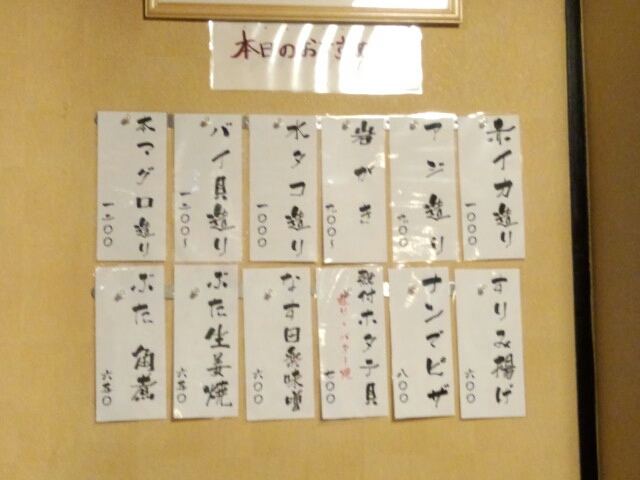 本日のおすすめ
赤イカ造り
一〇〇〇
アジ造り
九〇〇
岩がき
九〇〇〜
水タコ造り
一〇〇〇
バイ貝造り
一二〇〇〜
本マグロ造り
一二〇〇
すりみ揚げ
六〇〇
ナンでピザ
八〇〇
殻付ホタテ貝
造り・バター焼
七〇〇
なす田楽味噌
六〇〇
ぶた生姜焼
六五〇
ぶた角煮
六五〇